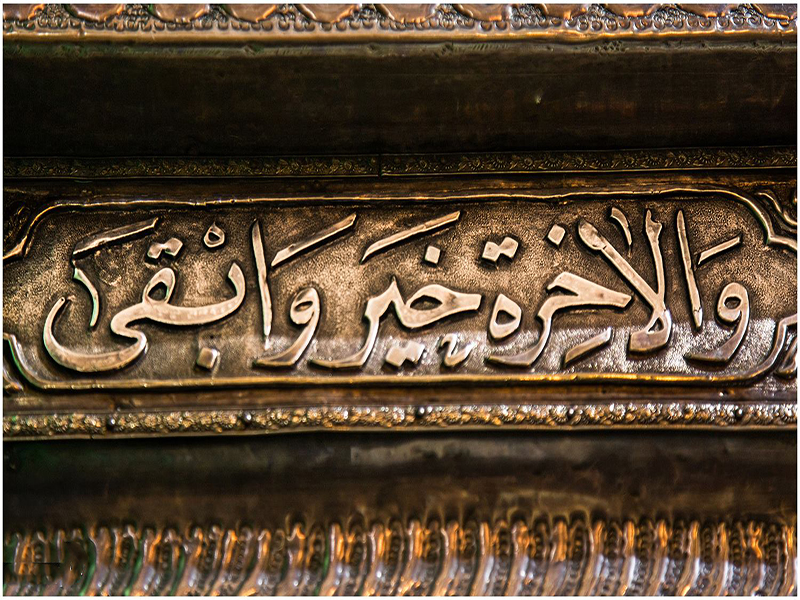 وَالْاخِرَةُ خَیْرٌ وَاَبْقىٰ